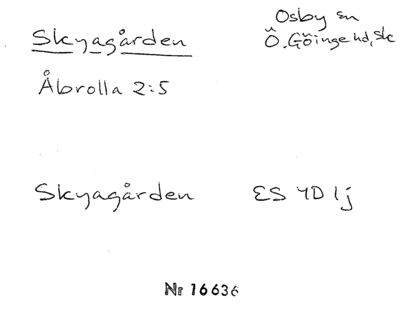 Skyagården
Osby sn
Ö. Göinge hd, Sk
Åbrolla 2:5
Skyagården ES 4D 1j
Nr 16636